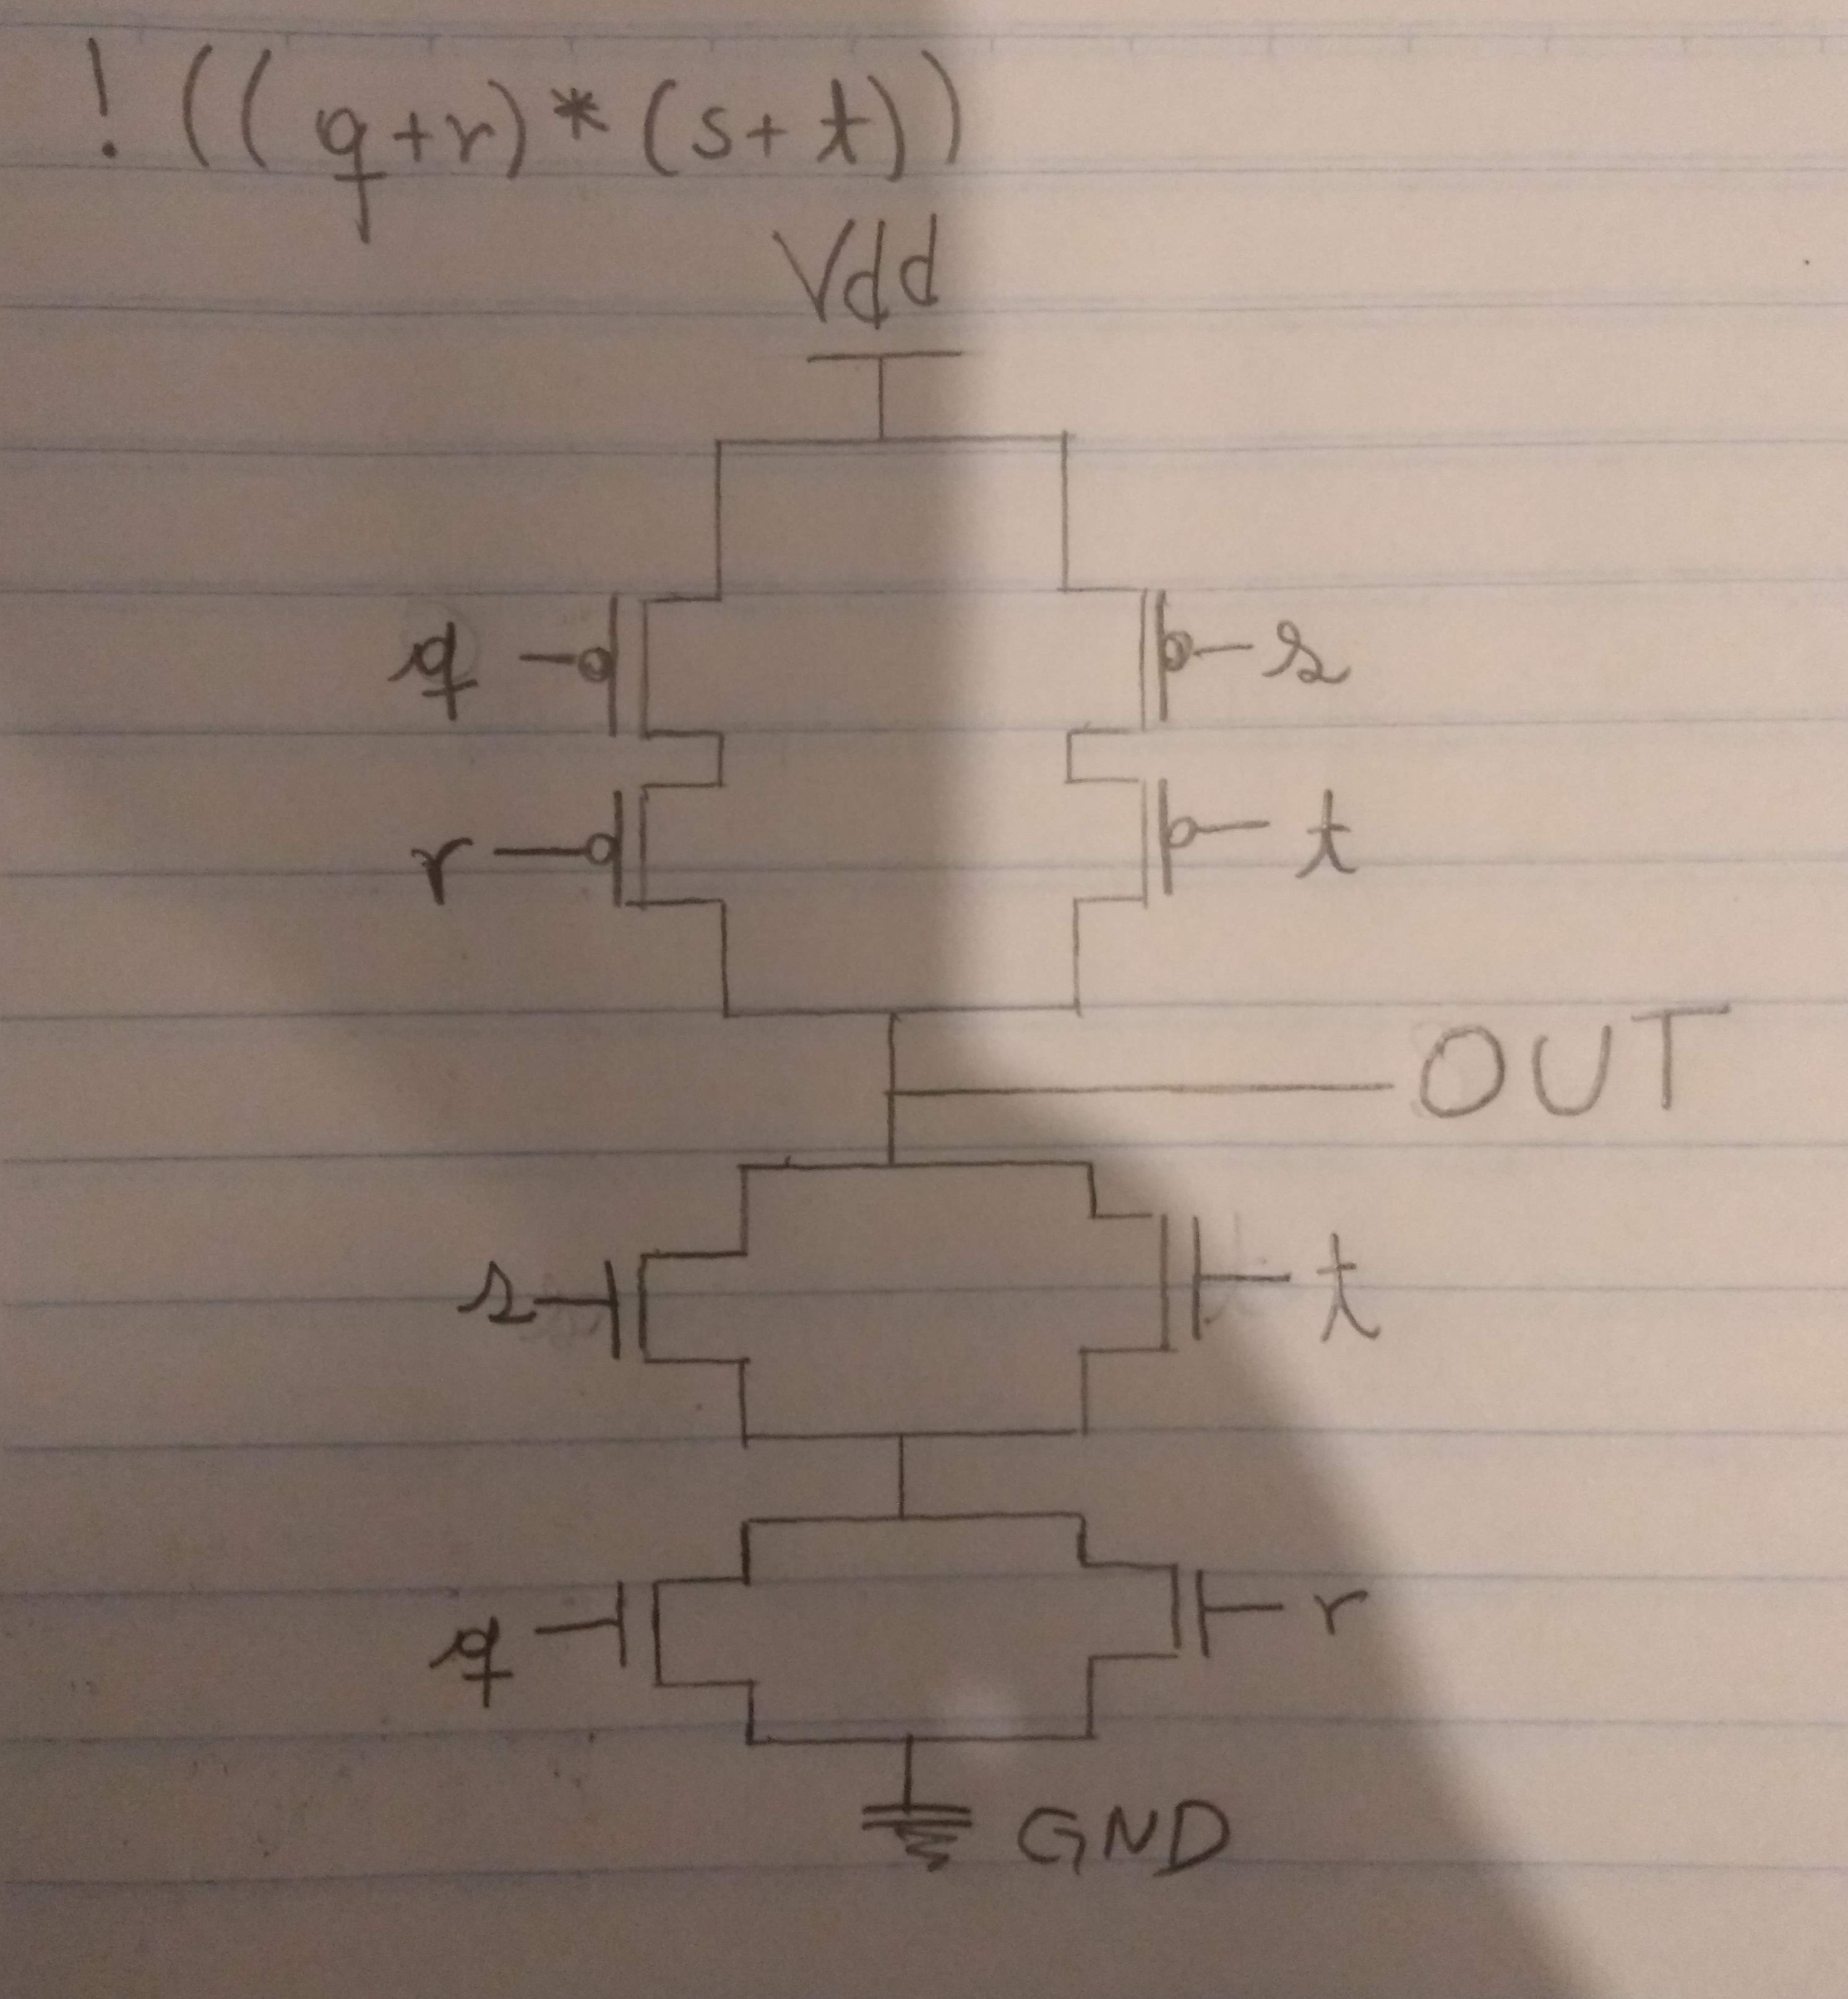 ! ((q+r) * (s+t))
Vdd
q s
r t
OUT
s t
q r
GND